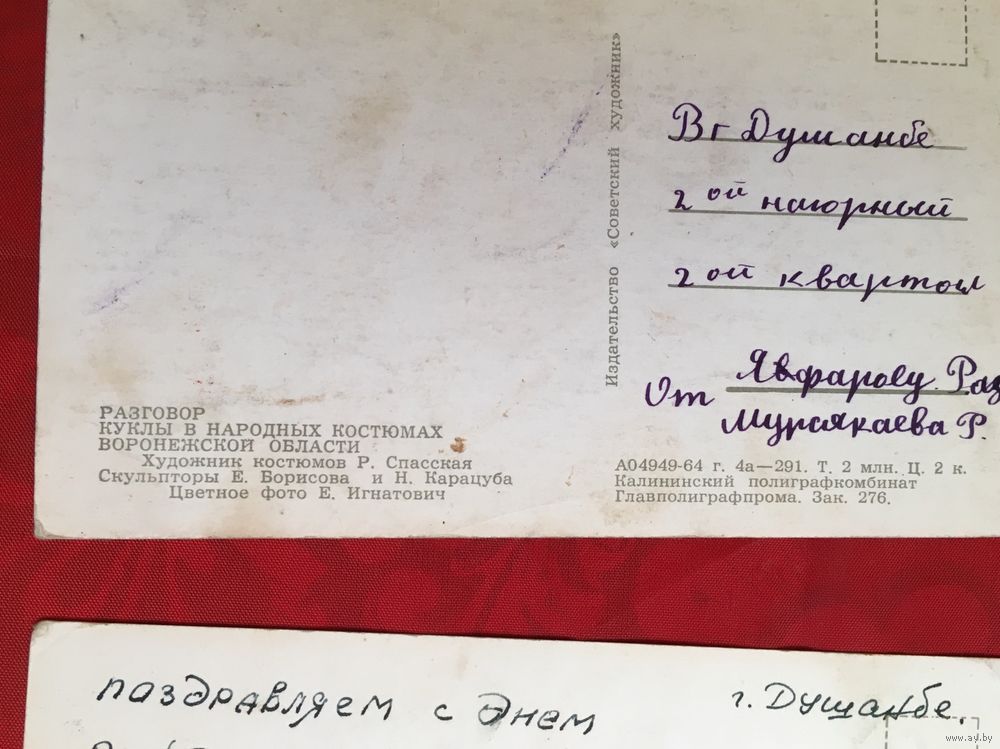 Издательство «Советский художник»
Вг Душанбе
2 ой нагорный
2 ой квартал
Явфарову
От Мурсякаева Р.
РАЗГОВОР
КУКЛЫ В НАРОДНЫХ КОСТЮМАХ
ВОРОНЕЖСКОЙ ОБЛАСТИ
Художник костюмов Р. Спасская
Скульпторы Е. Борисова и Н. Карацуба
Цветное фото Е. Игнатович
А04949-64 г. 4а—291. Т. 2 млн. Ц. 2 к.
Калининский полиграфкомбинат
Главполиграфпрома. Зак. 276.
паздравляем с днем
г. Душанбе.
www.ay.by